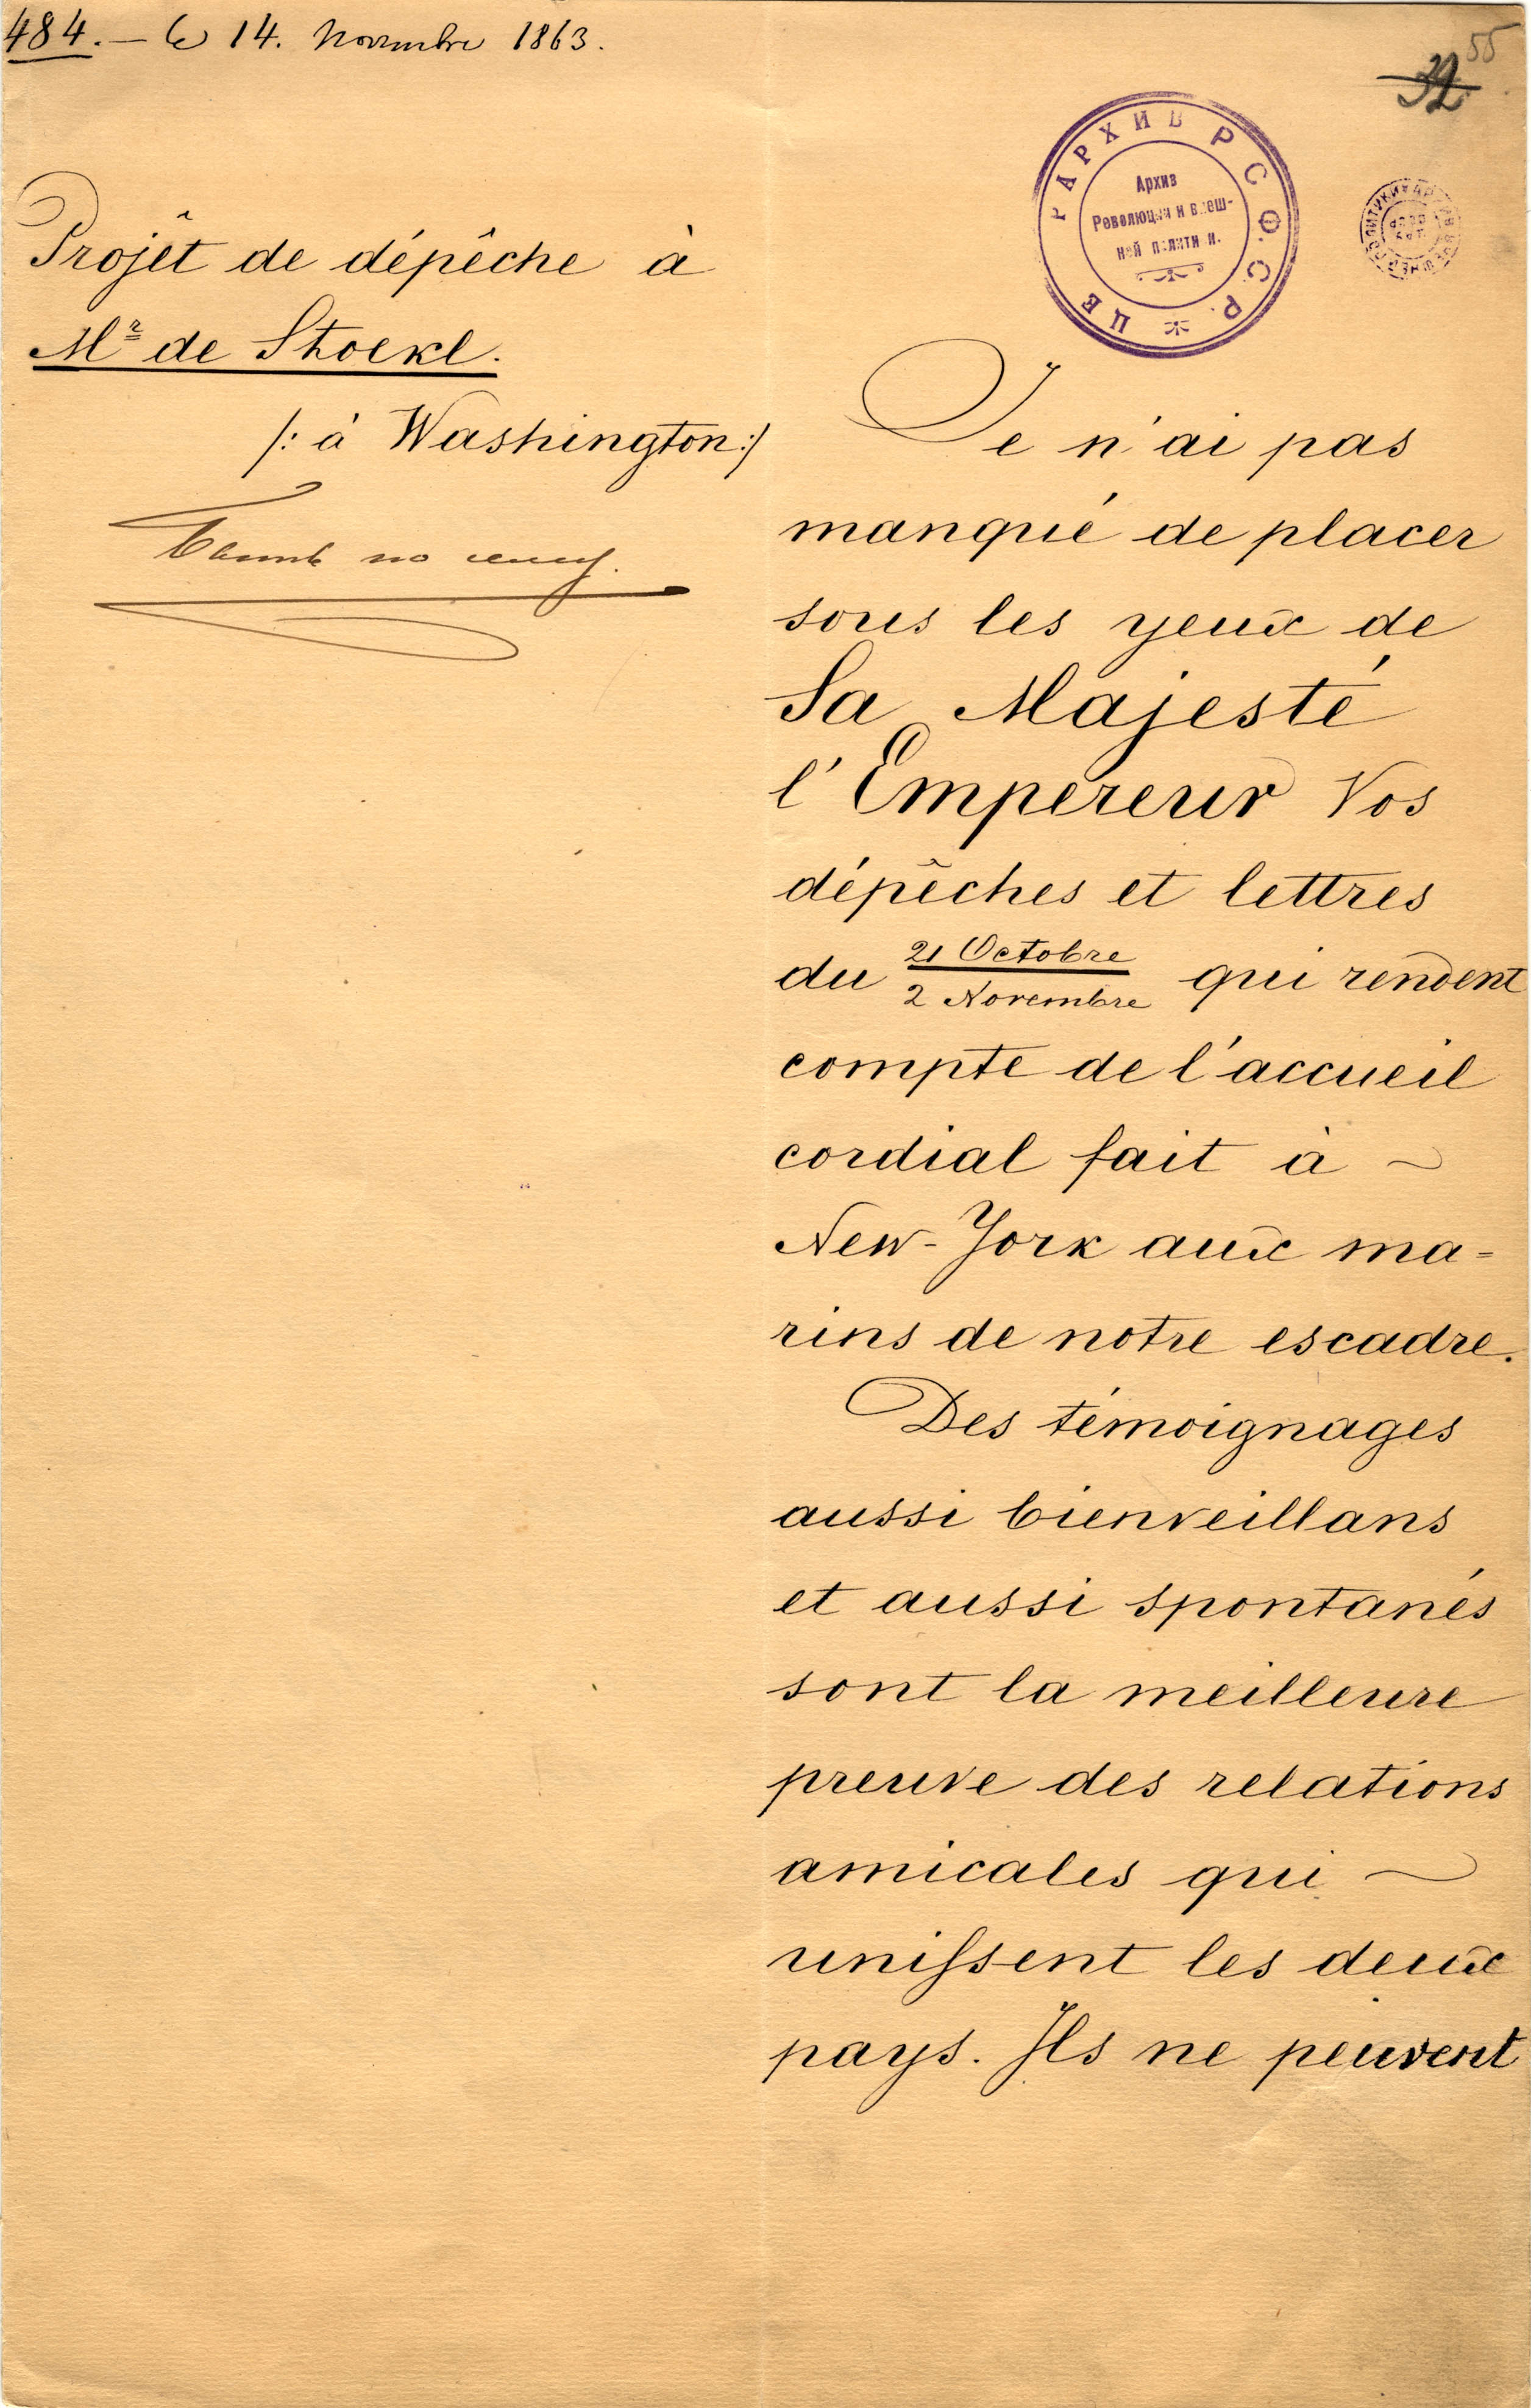 484. — le 14. Novembre 1863.
55
32
Projêt de dépêche à
Mr de Stoekl.
/: à Washington :/
Быть по сему.
ЦЕ АРХИВ Р.С.Ф.С.Р.
Архив
Революции и внеш-
ней политики.
Je n'ai pas
manqué de placer
sous les yeux de
Sa Majesté
l'Empereur Vos
dépêches et lettres
du 21 Octobre / 2 Novembre qui rendent
compte de l'accueil
cordial fait à
New-York aux ma=
rins de notre escadre.
Des témoignages
aussi bienveillans
et aussi spontanés
sont la meilleure
preuve des relations
amicales qui
unissent les deux
pays. Ils ne peuvent